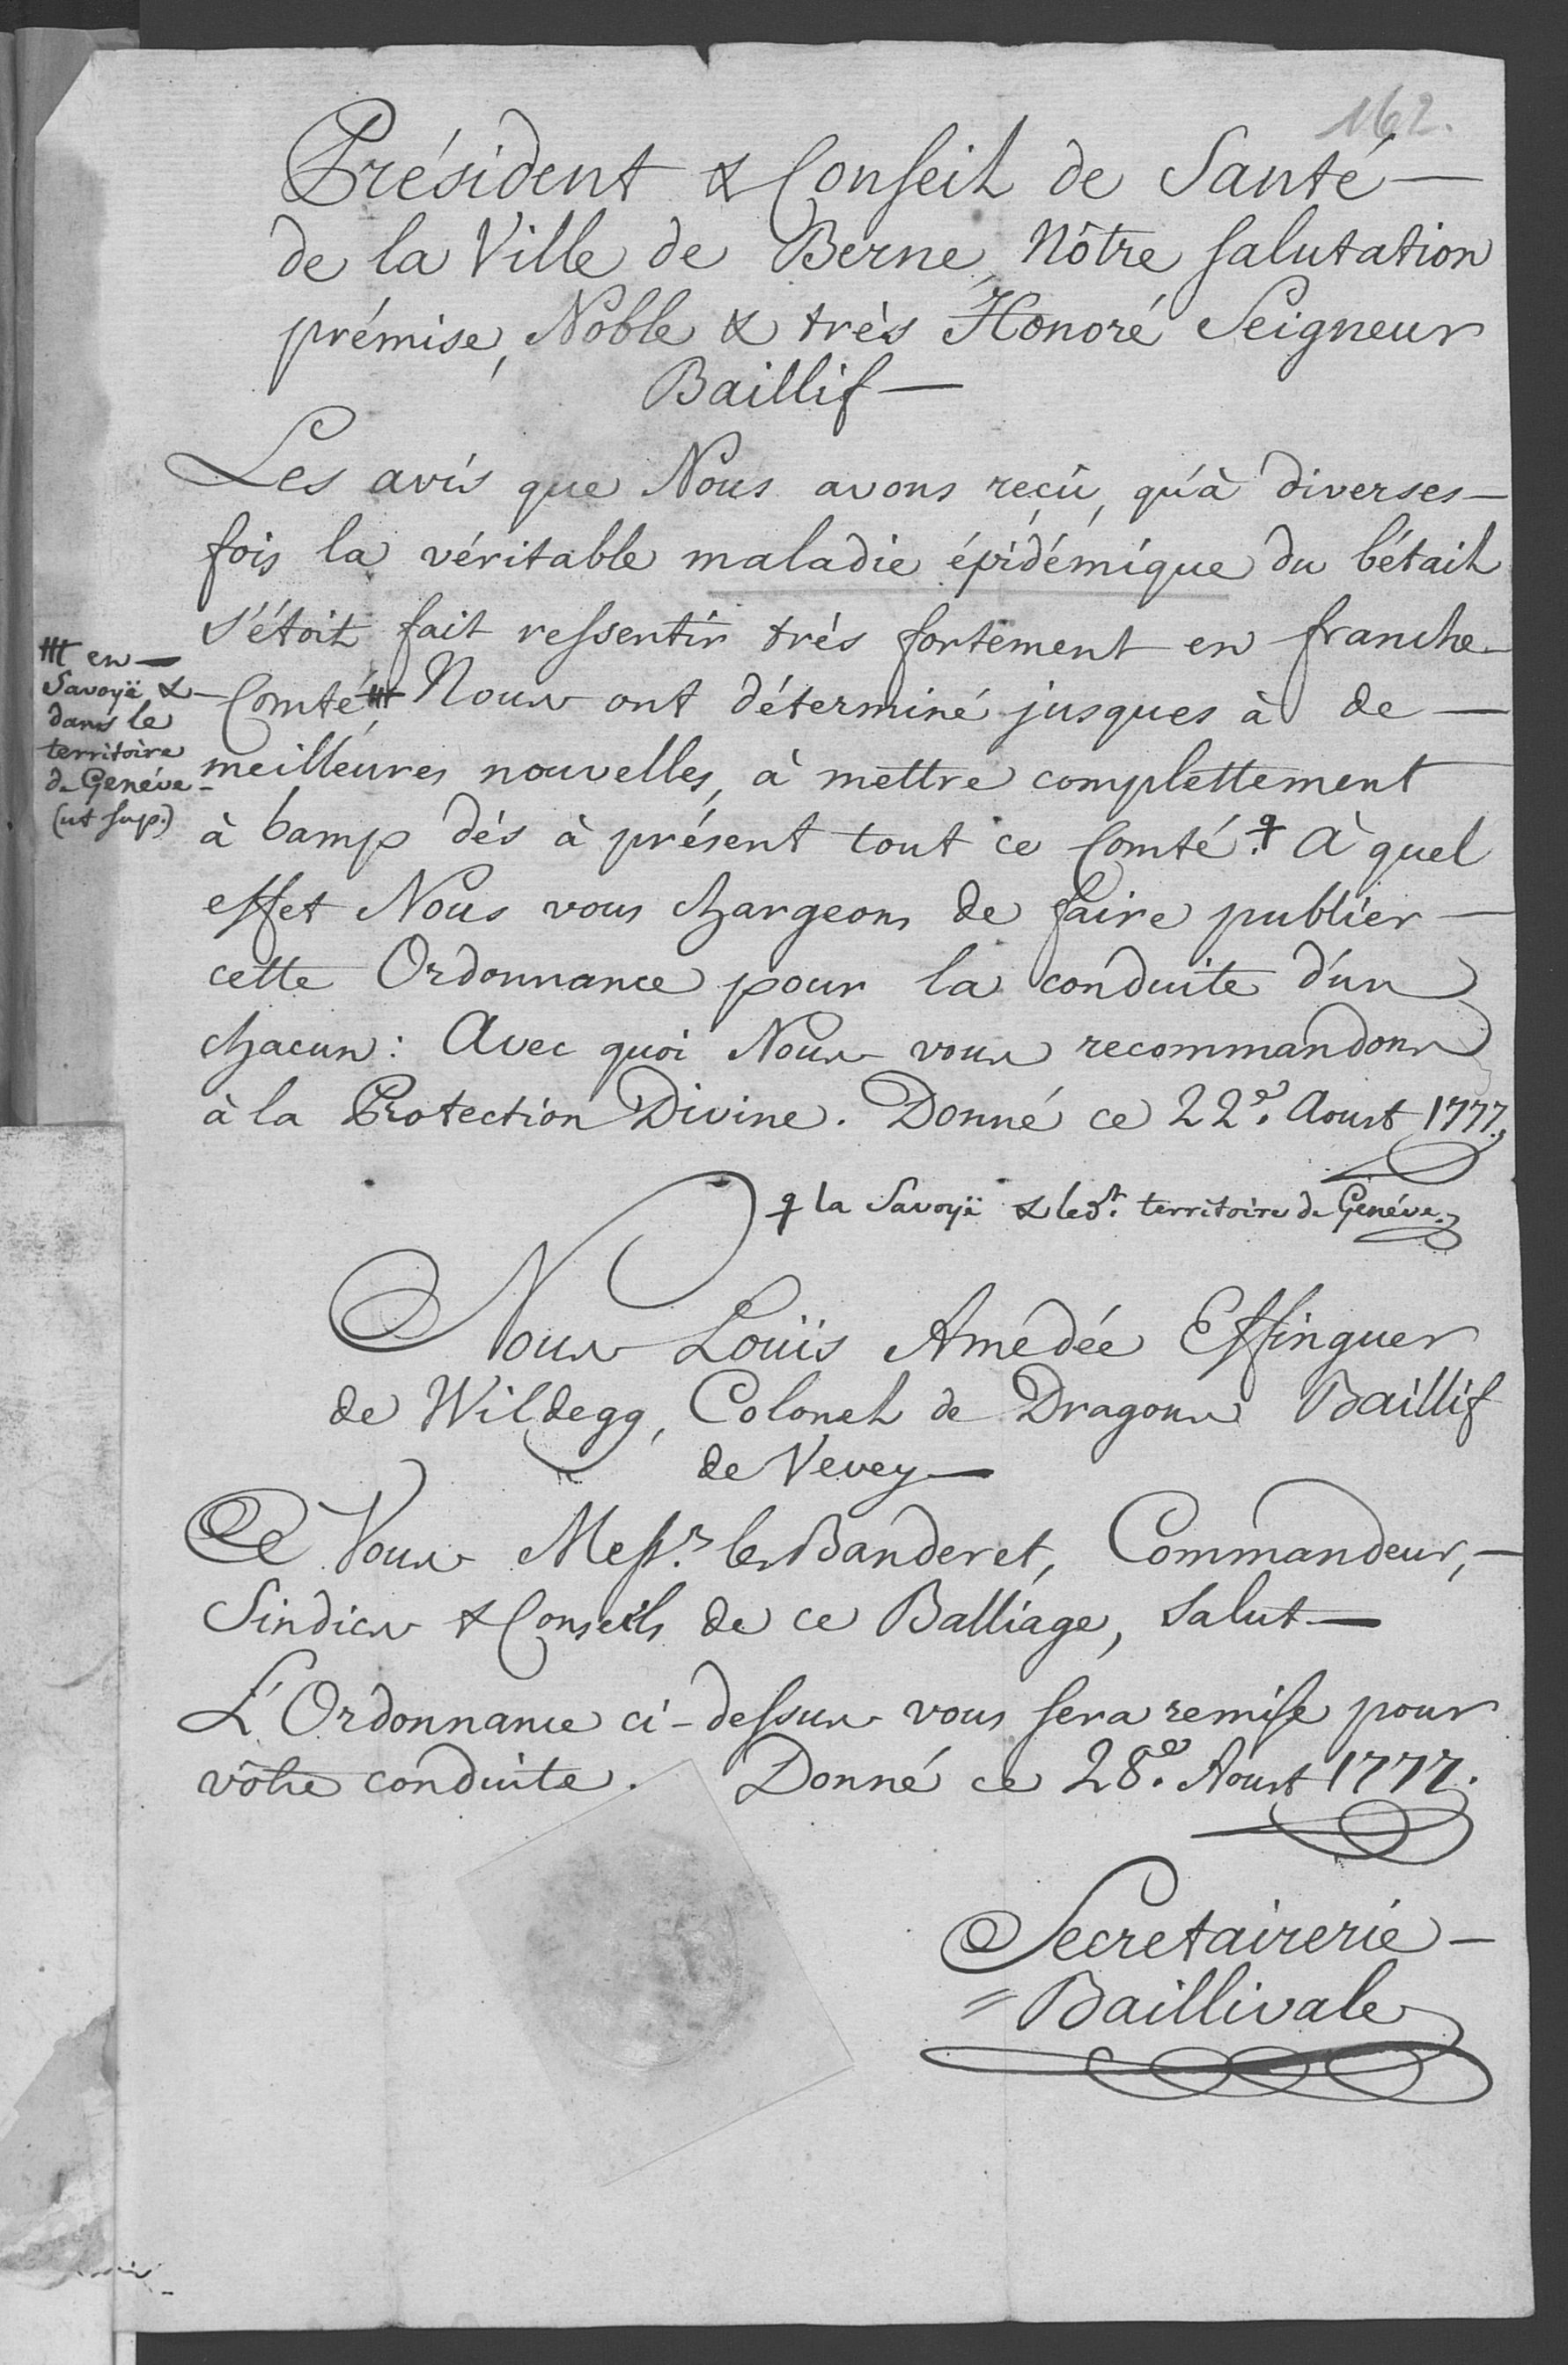 162.
Président & Conseil de Santé
de la Ville de Berne, Nôtre salutation
prémise, Noble & très Honoré Seigneur
Baillif
Les avis que Nous avons reçû, qu'à diverses
fois la véritable maladie épidémique du bétail
s'étoit fait ressentir trés fortement en franche
Comté, # Nous ont déterminé jusques à de
meilleures nouvelles, à mettre complettement
à bamp dés à présent tout ce Comté. ♀ à quel
effet Nous vous chargeons de faire publier
cette Ordonnance pour la conduite d'un
chacun : Avec quoi Nous vous recommandons
à la Protection Divine. Donné ce 22e. Aoust 1777.
# en
Savoÿe &
dans le
territoire
de Genéve
(ut sup.)
♀ la Savoÿe & ledt. territoire de Genéve.
Nous Louïs Amédée Effinguer
de Wildegg, Colonel de Dragons Baillif
de Vevey
à Vous Messrs. les Banderet, Commandeur,
Sindics & Conseils de ce Balliage, Salut
L'Ordonnance ci-dessus vous sera remise pour
vôtre conduite. Donné ce 28e. Aoust 1777.
Secretairerie
Baillivale